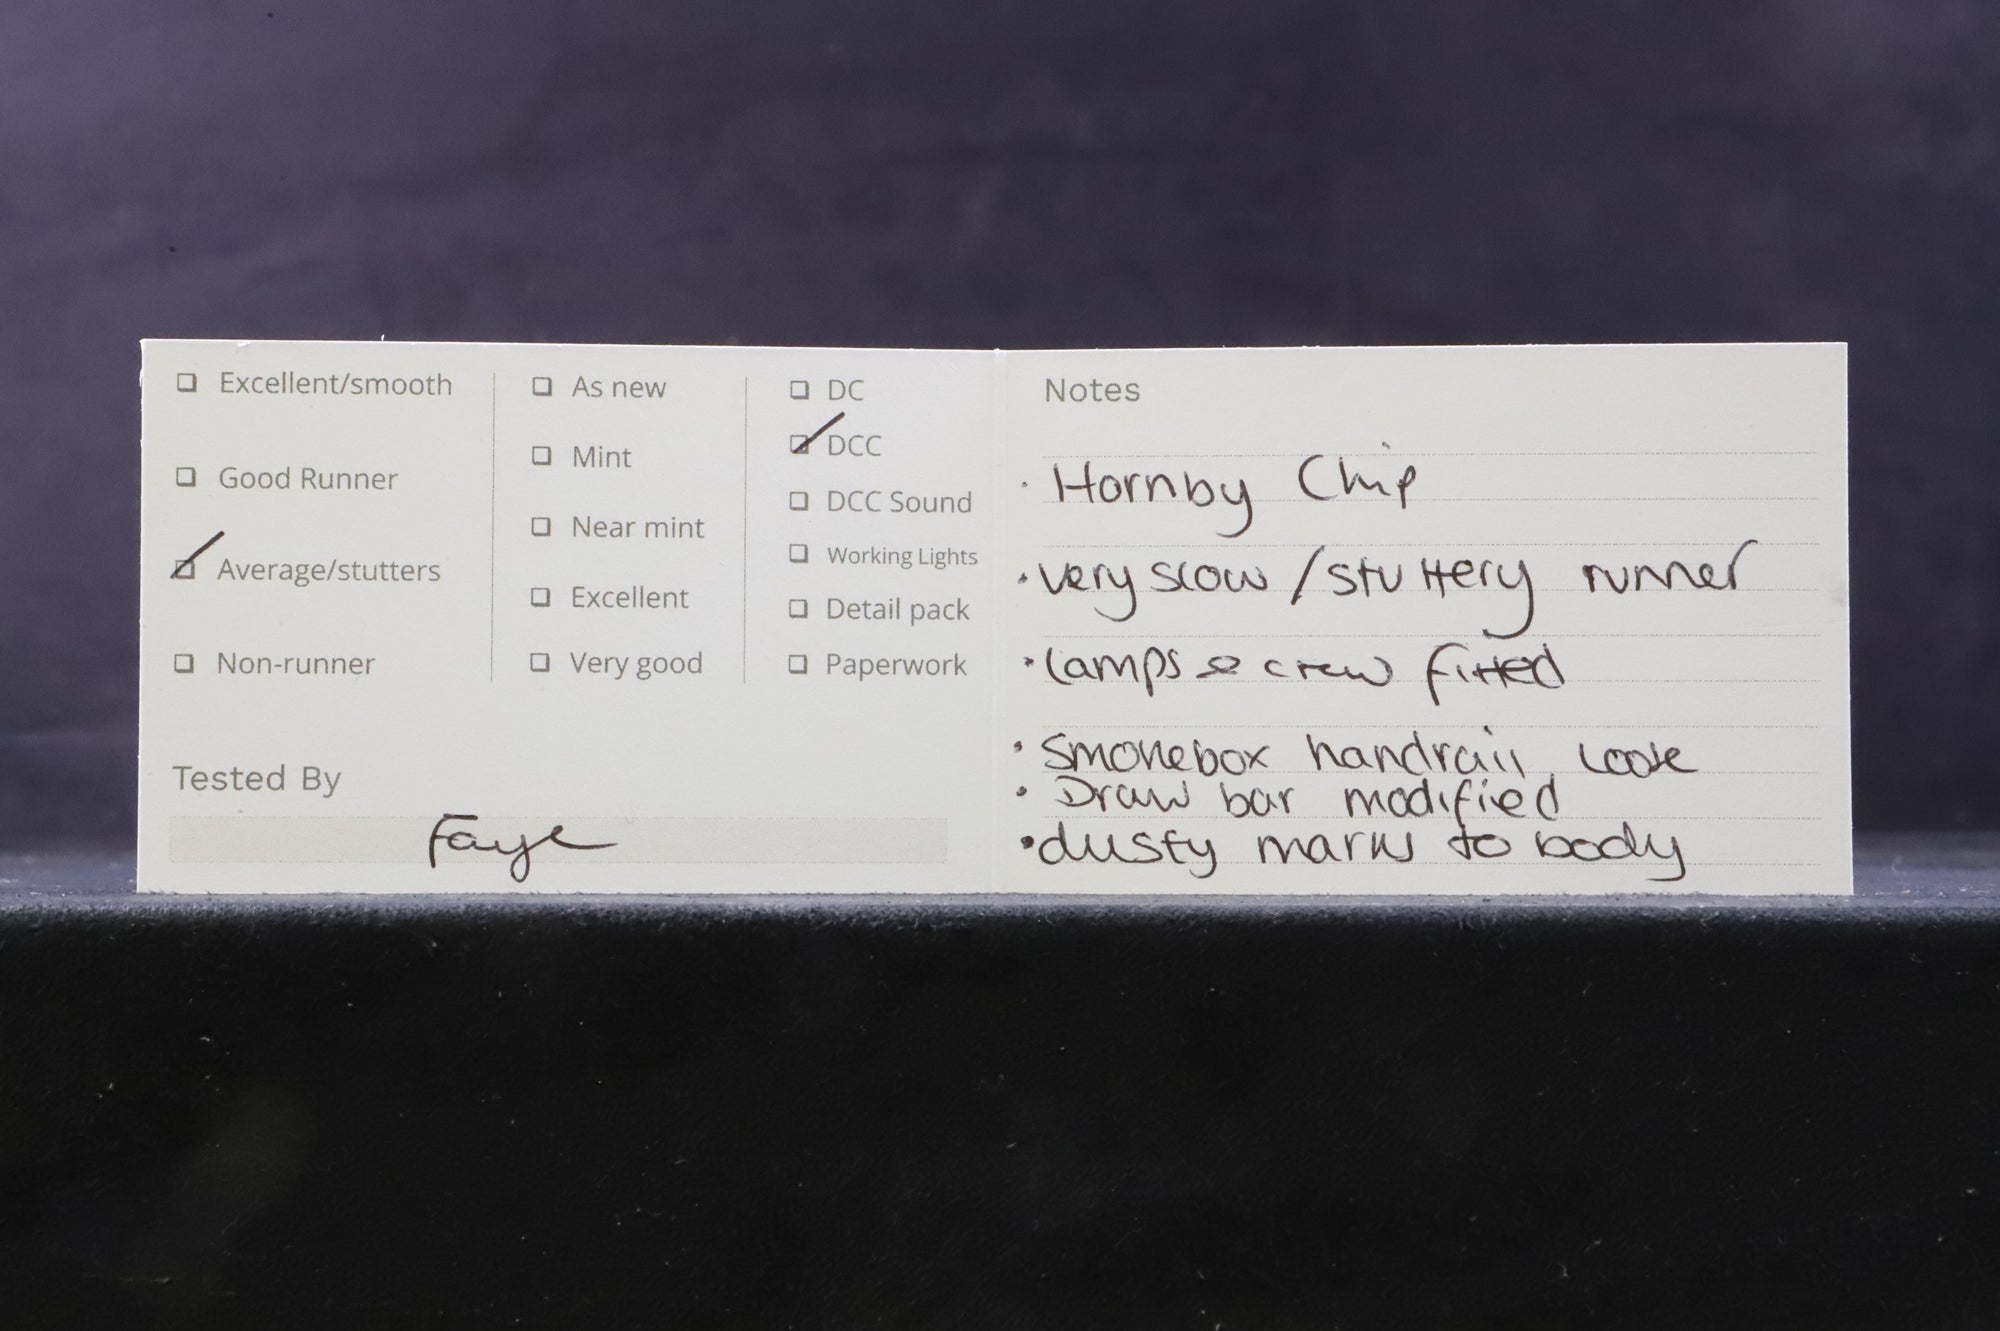 Excellent/smooth
Good Runner
Average/stutters
Non-runner
As new
Mint
Near mint
Excellent
Very good
DC
DCC
DCC Sound
Working Lights
Detail pack
Paperwork
Tested By
Faye
Notes
· Hornby Chip
· very slow / stuttery runner
· Lamps & crew fitted
· Smokebox handrail loose
· Draw bar modified
· dusty marks to body